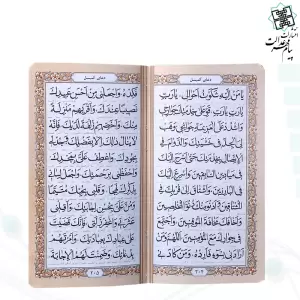 دعای کمیل
یا مَنْ اِلَیْهِ شَکَوْتُ اَحْوالی یا رَبِّ
یا رَبِّ یا رَبِّ قَوِّ عَلی خِدْمَتِکَ جَوارِحی
وَاشْدُدْ عَلَی الْعَزیمَةِ جَوانِحی وَهَبْ
لِیَ الْجِدَّ فی خَشْیَتِکَ وَالدَّوامَ فِی
الْاِتِّصالِ بِخِدْمَتِکَ حَتّی اَسْرَحَ اِلَیْکَ
فی مَیادینِ السّابِقینَ وَاُسْرِعَ اِلَیْکَ
فِی الْبارِزینَ وَاَشْتاقَ اِلی قُرْبِکَ فِی
الْمُشْتاقینَ وَاَدْنُوَ مِنْکَ دُنُوَّ الْمُخْلِصینَ
وَاَخافَکَ مَخافَةَ الْمُوقِنینَ وَاَجْتَمِعَ
فی جِوارِکَ مَعَ الْمُؤْمِنینَ اَللّهُمَّ وَمَنْ
اَرادَنی بِسُوءٍ فَاَرِدْهُ وَمَنْ کادَنی
۲۰۴
دعای کمیل
فَکِدْهُ وَاجْعَلْنی مِنْ اَحْسَنِ عَبیدِکَ
نَصیباً عِنْدَکَ وَاَقْرَبِهِمْ مَنْزِلَةً
مِنْکَ وَاَخَصِّهِمْ زُلْفَةً لَدَیْکَ فَاِنَّهُ
لا یُنالُ ذلِکَ اِلّا بِفَضْلِکَ وَجُدْ لی
بِجُودِکَ وَاعْطِفْ عَلَیَّ بِمَجْدِکَ
وَاحْفَظْنی بِرَحْمَتِکَ وَاجْعَلْ لِسانی
بِذِکْرِکَ لَهِجاً وَقَلْبی بِحُبِّکَ مُتَیَّماً
وَمُنَّ عَلَیَّ بِحُسْنِ اِجابَتِکَ وَاَقِلْنی
عَثْرَتی وَاغْفِرْ زَلَّتی فَاِنَّکَ قَضَیْتَ
عَلی عِبادِکَ بِعِبادَتِکَ وَاَمَرْتَهُمْ
بِدُعائِکَ وَضَمِنْتَ لَهُمُ الْاِجابَةَ
۲۰۵